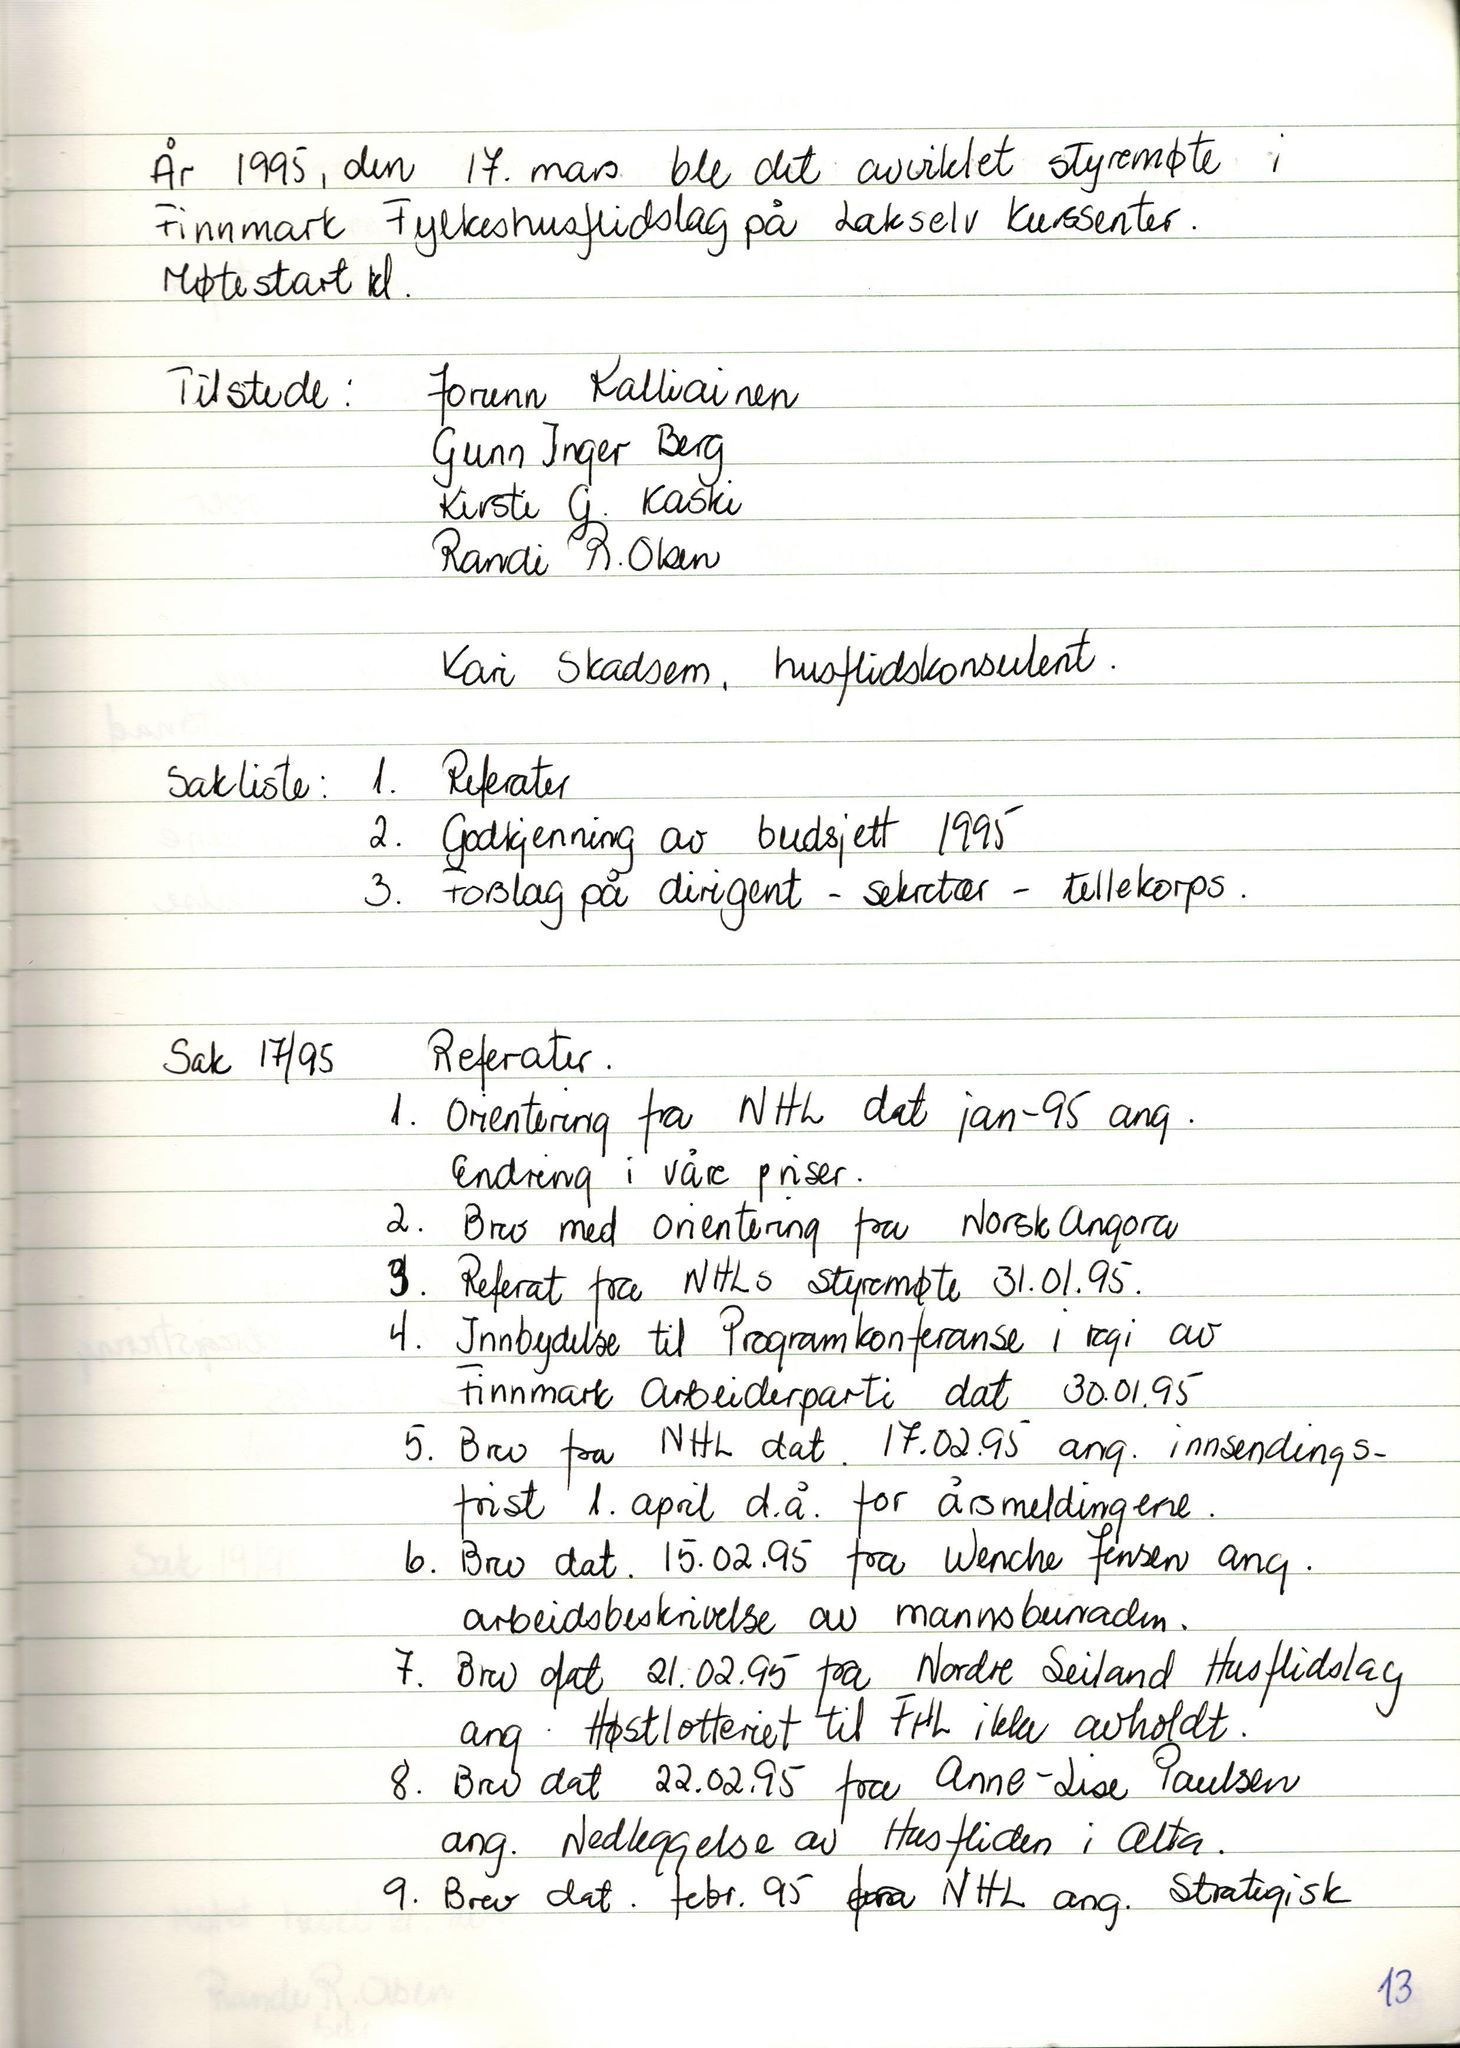 År 1995, den 17. mars ble det avviklet styremøte i
Finnmark Fylkeshusflidslag på Lakselv Kurssenter.
Møtestart kl.
Tilstede: Jorunn Kalliainen
Gunn Inger Berg
Kirsti G. Kaski
Randi R. Olsen
Kari Skadsem, husflidskonsulent.
Sakliste: 1. Referater
2. Godkjenning av budsjett 1995
3. Forslag på dirigent - sekretær - tellekorps.
Sak 17/95 Referater.
1. Orientering fra NHL dat jan-95 ang.
Endring i våre priser.
2. Brev med orientering fra Norsk Angora
3. Referat fra NHLs styremøte 31.01.95.
4. Innbydelse til Programkonferanse i regi av
Finnmark Arbeiderparti dat 30.01.95
5. Brev fra NHL dat. 17.02.95 ang. innsendings-
frist 1. april d.å. for årsmeldingene.
6. Brev dat. 15.02.95 fra Wenche Jensen ang.
arbeidsbeskrivelse av mannsbunaden.
7. Brev dat 21.02.95 fra Nordre Seiland Husflidslag
ang. Høstlotteriet til FHL ikke avholdt.
8. Brev dat 22.02.95 fra Anne-Lise Paulsen
ang. Nedleggelse av Husfliden i Alta.
9. Brev dat. febr. 95 fra NHL ang. Strategisk
13